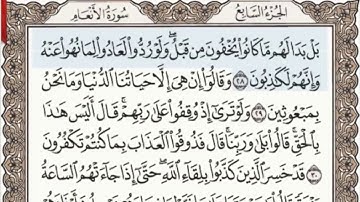 الجزء السابع سورة الأنعام
بَلْ بَدَا لَهُم مَّا كَانُوا۟ يُخْفُونَ مِن قَبْلُ ۖ وَلَوْ رُدُّوا۟ لَعَادُوا۟ لِمَا نُهُوا۟ عَنْهُ
وَإِنَّهُمْ لَكَٰذِبُونَ ٢٨ وَقَالُوٓا۟ إِنْ هِىَ إِلَّا حَيَاتُنَا ٱلدُّنْيَا وَمَا نَحْنُ
بِمَبْعُوثِينَ ٢٩ وَلَوْ تَرَىٰٓ إِذْ وُقِفُوا۟ عَلَىٰ رَبِّهِمْ ۚ قَالَ أَلَيْسَ هَٰذَا
بِٱلْحَقِّ ۚ قَالُوا۟ بَلَىٰ وَرَبِّنَا ۚ قَالَ فَذُوقُوا۟ ٱلْعَذَابَ بِمَا كُنتُمْ تَكْفُرُونَ ٣٠
قَدْ خَسِرَ ٱلَّذِينَ كَذَّبُوا۟ بِلِقَآءِ ٱللَّهِ ۖ حَتَّىٰٓ إِذَا جَآءَتْهُمُ ٱلسَّاعَةُ